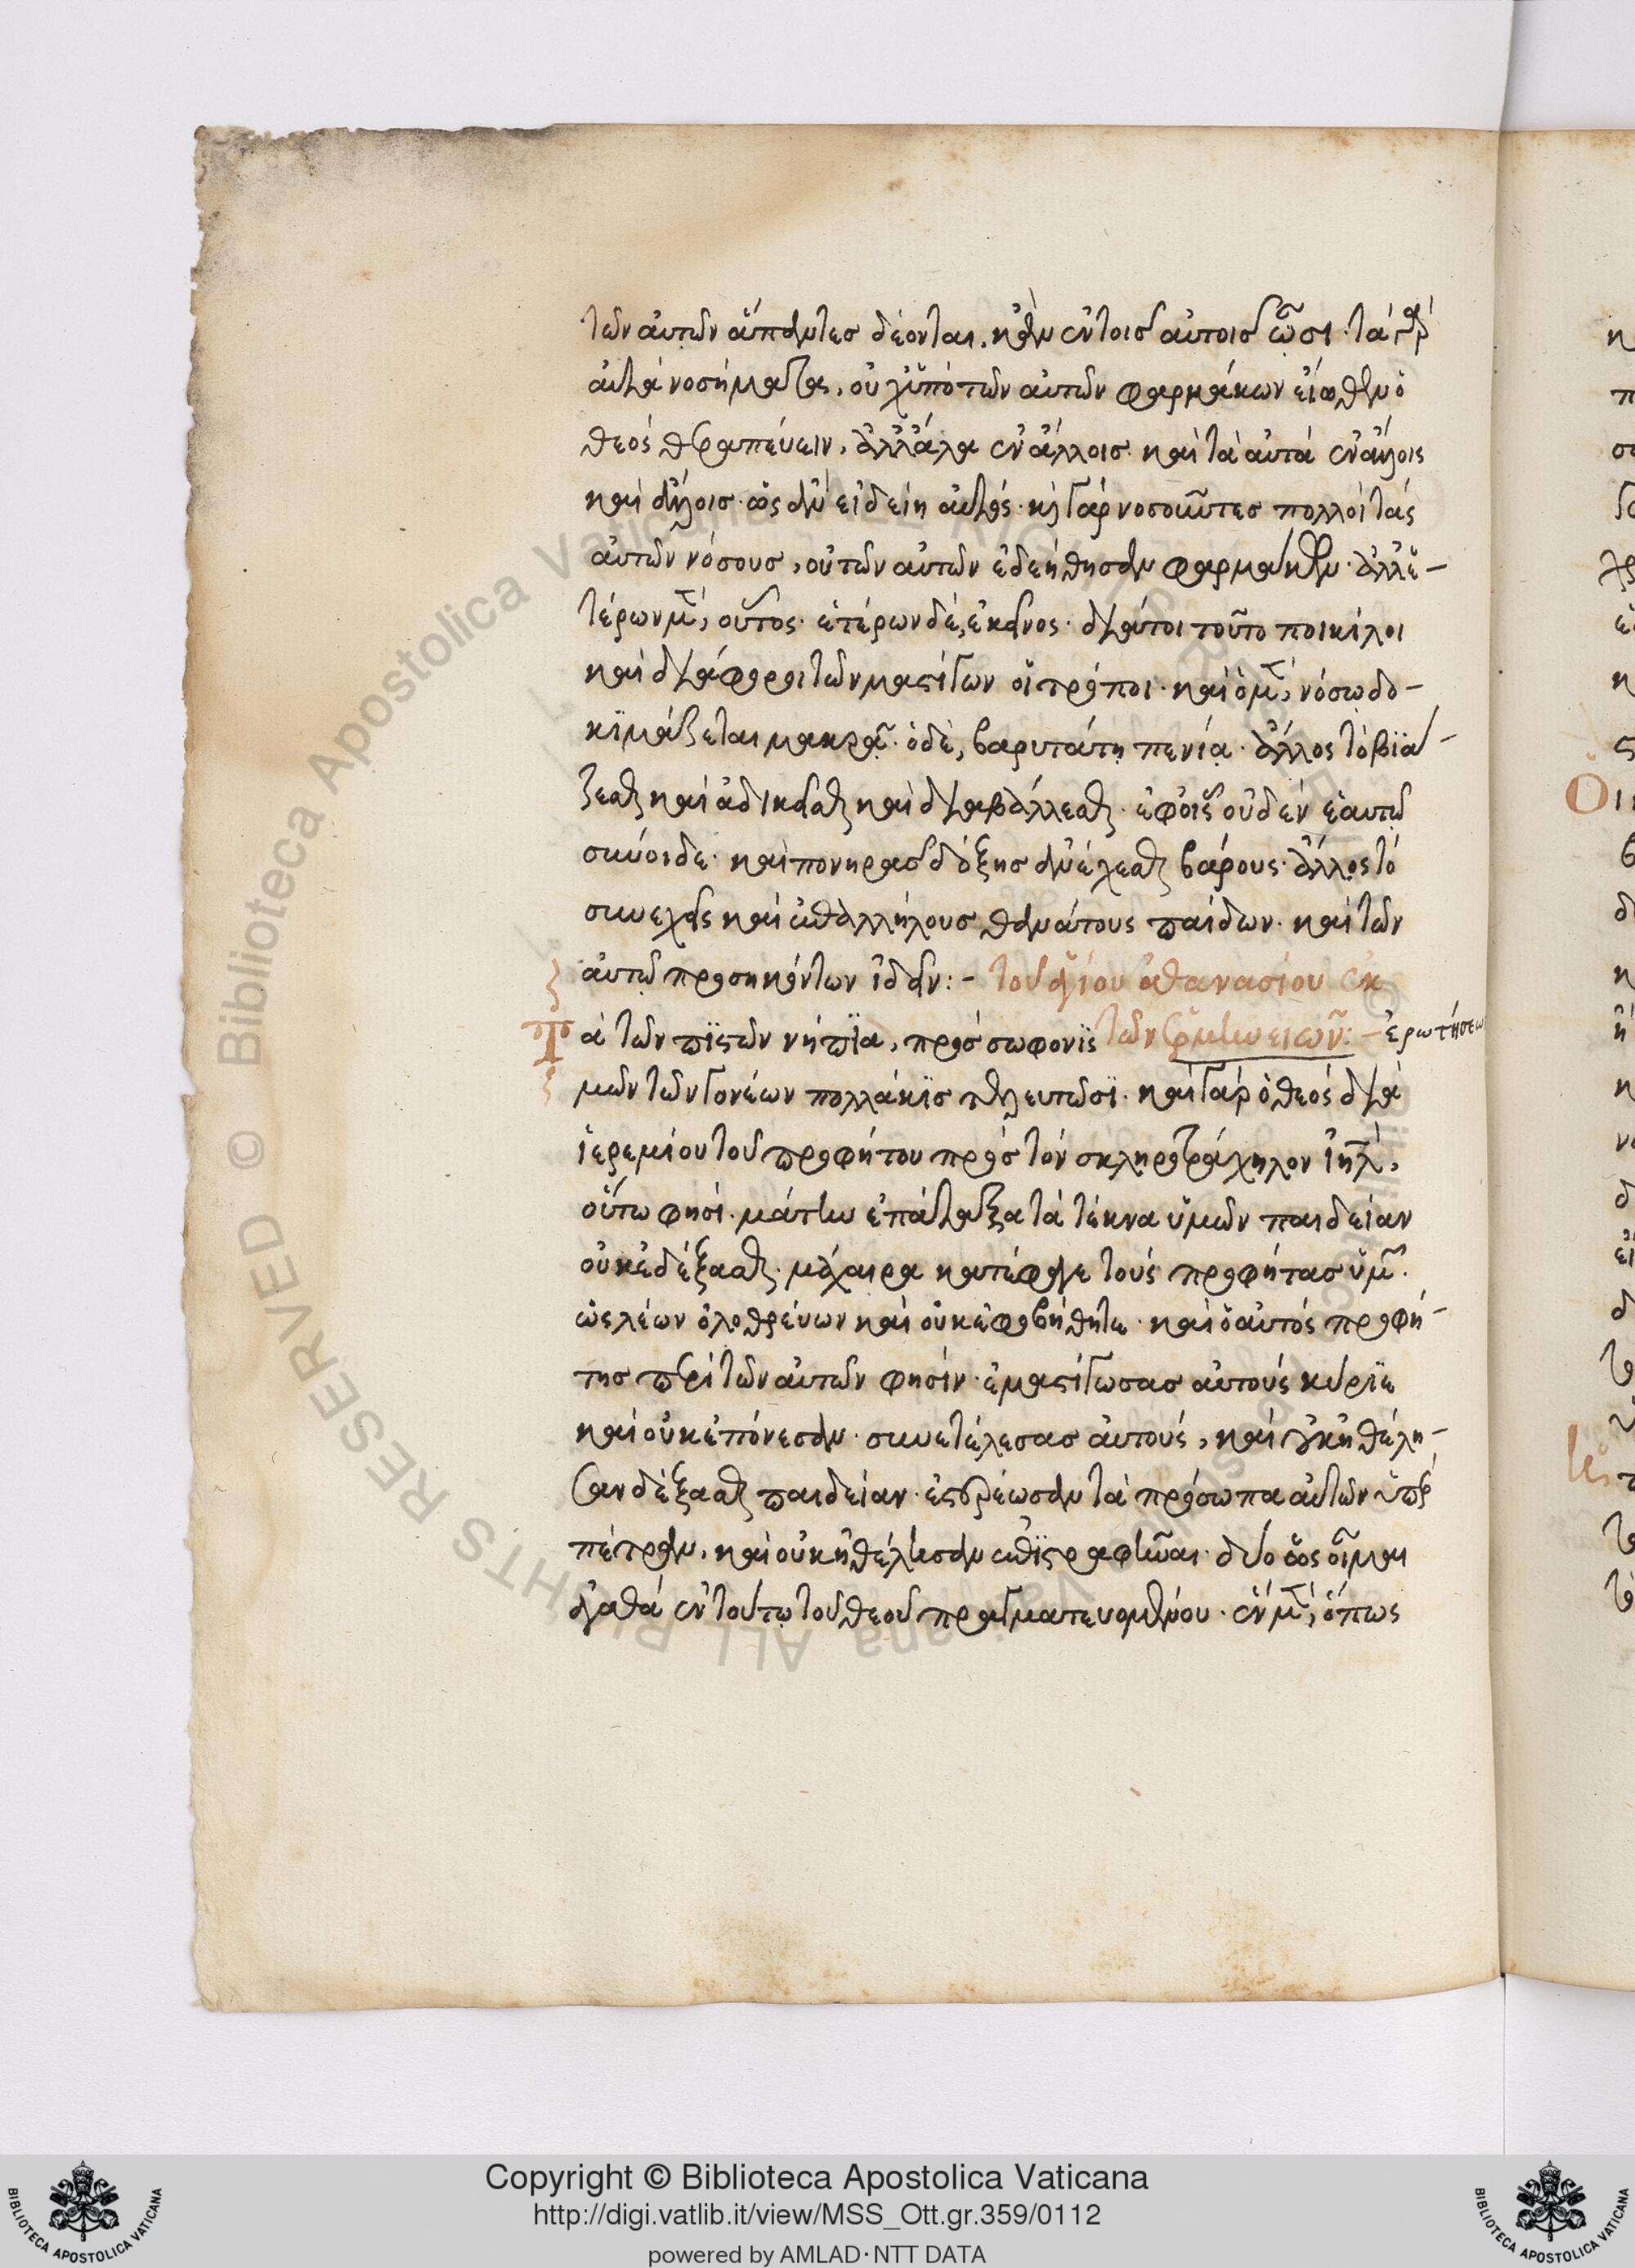 τῶν αὐτῶν ἅπαντες δέονται. κἂν ἐν τοῖς αὐτοῖς ὦσι. τὰ γὰρ
αὐτὰ νοσήματα, οὐχ ὑπὸ τῶν αὐτῶν φαρμάκων εἴωθεν ὁ
θεὸς θεραπεύειν, ἀλλ' ἄλλα ἐν ἄλλοις καὶ τὰ αὐτὰ ἐν ἄλλοις
καὶ ἄλλοις ὡς ἂν εἰδείη αὐτὸς. καὶ γὰρ νοσοῦντες πολλοὶ τὰς
αὐτῶν νόσους, οὐ τῶν αὐτῶν ἐδεήθησαν φαρμάκων. ἀλλ' ἑ-
τέρων μὲν, οὗτος. ἑτέρων δὲ, ἐκεῖνος. διάτοι τοῦτο ποικίλοι
καὶ διάφοροι τῶν μαστίγων οἱ τρόποι. καὶ ὁ μὲν, νόσω δο-
κϊμάζεται μακρᾷ. ὁ δὲ, βαρυτάτῃ πενίᾳ. ἄλλος τὸ βϊά-
ζεσθαι καὶ ἀδικεῖσθαι καὶ διαβάλλεσθαι. ἐφ' οἷς οὐδὲν ἑαυτῷ
σύνοιδε. καὶ πονηρᾶς δόξης ἀνέχεσθαι βάρους. ἄλλος τὸ
συνεχεῖς καὶ ἐπαλλήλους θανάτους παίδων. καὶ τῶν
αὐτῷ προσηκόντων ἰδεῖν:- τοῦ ἁγίου ἀθανασίου ἐκ
τῶν ἑρμηνειῶν:- ἐρωτήσεω
Τὰ τῶν πϊστῶν νήπϊα, πρὸς σωφρονϊς
μὸν τῶν γονέων πολλάκϊς τελευτῶσϊ. καὶ γὰρ ὁ θεὸς διὰ
ἱερεμίου τοῦ προφήτου πρὸς τὸν σκληροτράχηλον ἰηλ,
οὕτω φησί. μάτην ἐπάταξα τὰ τέκνα ὑμῶν παιδείαν
οὐκ ἐδέξασθε. μάχαιρα κατέφαγε τοὺς προφήτας ὑμ.
ὡς λέων ὀλοθρεύων καὶ οὐκ ἐφοβήθητε. καὶ ὁ αὐτὸς προφή-
της περὶ τῶν αὐτῶν φησίν. ἐμαστίγωσας αὐτοὺς κύριε
καὶ οὐκ ἐπόνεσαν. συνετέλεσας αὐτούς, καὶ οὐκ ἠθέλη-
σαν δέξασθαι παιδείαν. ἐστερέωσαν τὰ πρόσωπα αὐτῶν ὑπὲρ
πέτραν. καὶ οὐκ ἠθέλησαν ἐπϊστραφῆναι. δύο ὡς οἶμαι
ἀγαθὰ ἐν τούτῳ τοῦ θεοῦ πραγματευομένου. ἓν μὲν, ὅπως
Copyright © Biblioteca Apostolica Vaticana
http://digi.vatlib.it/view/MSS_Ott.gr.359/0112
powered by AMLAD·NTT DATA